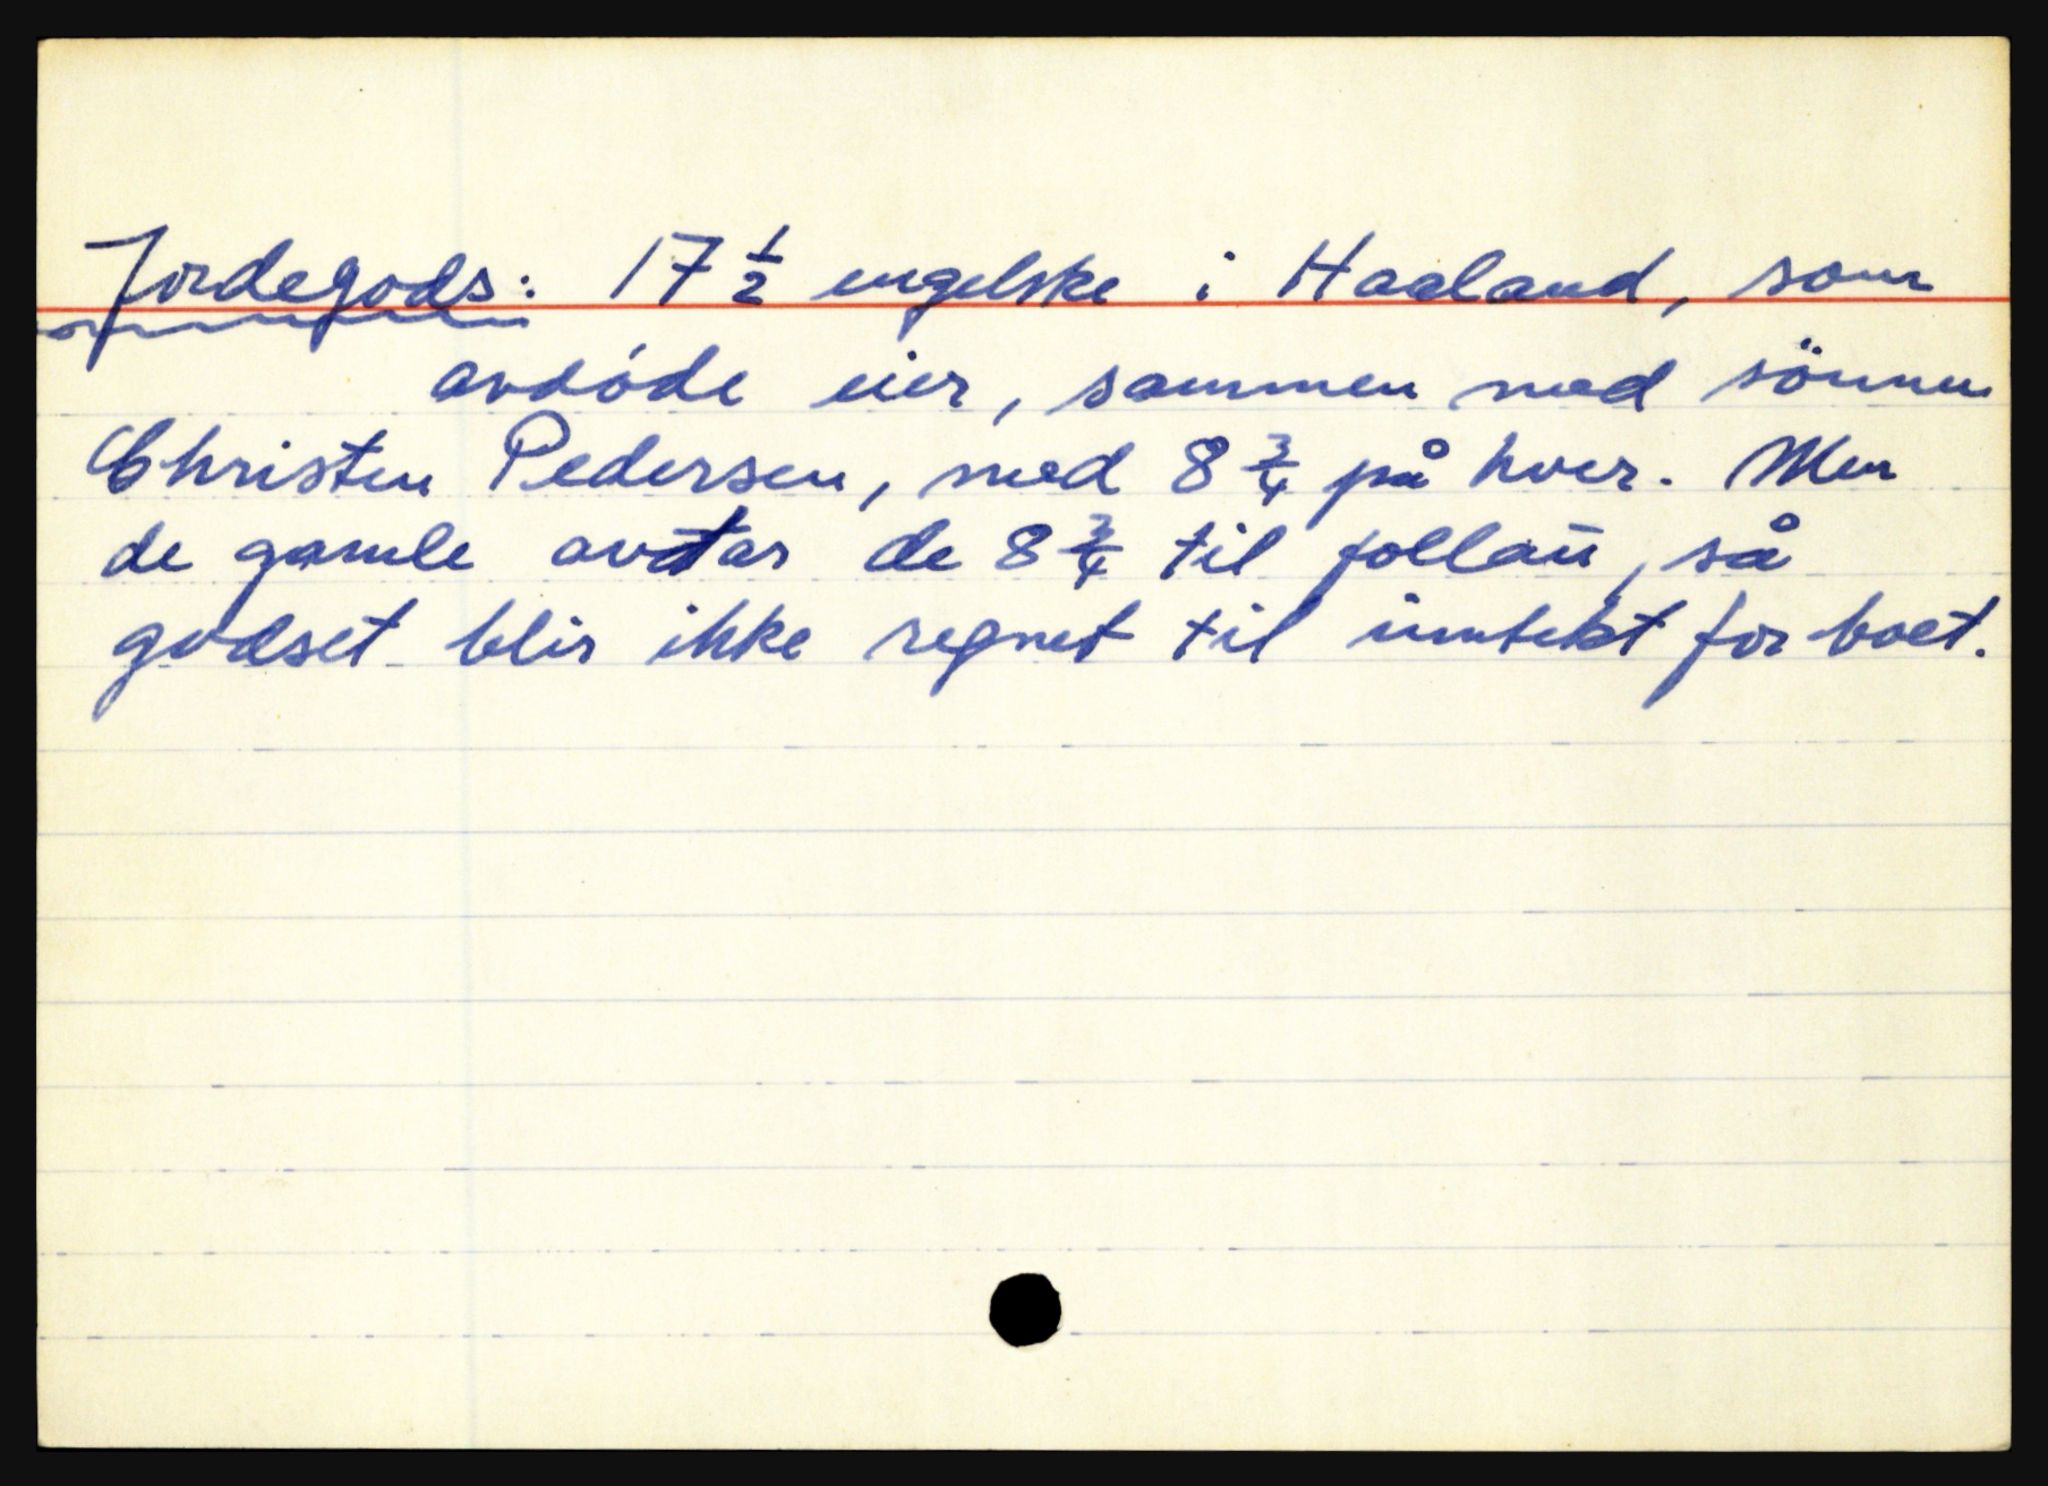 Jordegods: 17 1/2 engelske i Haaland, som
avdóde eier, sammen med sönnen
Christen Pedersen, med 8 3/4 på hver. Men
de gamle avtar de 8 3/4 til follaū, så
godset blir ikke regnet til inntekt for boet.